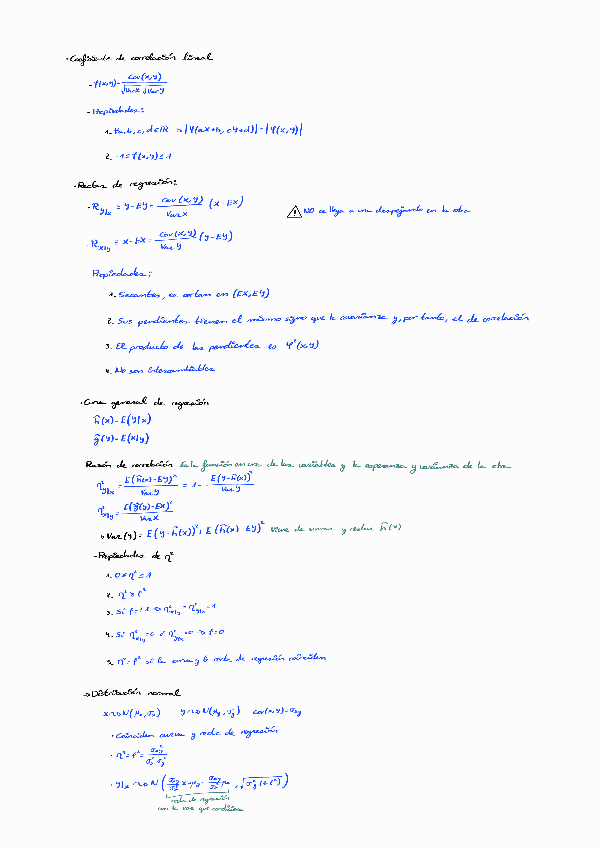 · Coeficiente de correlación lineal
- ρ(x,y) = cov(x,y) / √Var X √Var Y
- Propiedades:
1. ∀a, b, c, d ∈ ℝ → |ρ(aX+b, cY+d)| = |ρ(x,y)|
2. -1 ≤ ρ(x,y) ≤ 1
· Rectas de regresión:
· R y|x = y - EY = cov(x,y) / Var X (x - EX)
⚠ NO se llega a una despejando en la otra
· R x|y = x - EX = cov(x,y) / Var Y (y - EY)
Propiedades:
1. Secantes, se cortan en (EX, EY)
2. Sus pendientes tienen el mismo signo que la covarianza y, por tanto, el de correlación
3. El producto de las pendientes es ρ²(x,y)
4. No son intercambiables
· Curva general de regresión
ĥ(x) = E(Y|x)
ĝ(y) = E(X|y)
Razón de correlación Es la función de las variables y la esperanza y varianza de la otra
η² y|x = E(ĥ(x) - EY)² / Var Y = 1 - E(Y - ĥ(x))² / Var Y
η² x|y = E(ĝ(y) - EX)² / Var X
→ Var(y) = E(Y - ĥ(x))² + E(ĥ(x) - EY)² Viene de sumar y restar ĥ(x)
- Propiedades de η²
1. 0 ≤ η² ≤ 1
2. η² ≥ ρ²
3. Si ρ = ±1 → η² x|y = η² y|x = 1
4. Si η² x|y = 0 ó η² y|x = 0 → ρ = 0
5. η² = ρ² si la curva y la recta de regresión coinciden
→ Distribución normal
X ~ N(μx, σx) Y ~ N(μy, σy) cov(x,y) = σxy
· Coinciden curva y recta de regresión
· η² = ρ² = σ²xy / σ²x σ²y
· Y|x ~ N(σxy/σ²x x + μy - σxy/σ²x μx, √σ²y (1 - ρ²))
recta de regresión
con la var que condiciona